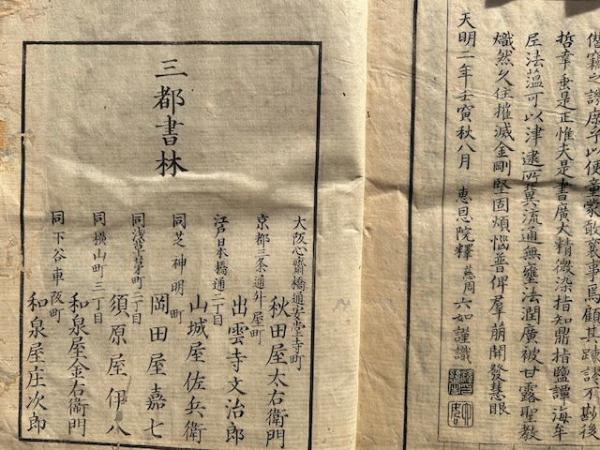 僭竊之誚庶乎以便童蒙敢褻事焉顧其踈謬不尠後
哲幸垂是正惟夫是書廣大精微染指知鼎指鹽譚海年
尼法蘊可以津逮所冀流通無壅法潤廣被甘露聖教
熾然久住摧滅金剛堅固煩惱普俾羣萠開發慧眼
天明二年壬寅秋八月 惠恩院釋慈周六如謹識
三都書林
大阪心齋橋通安堂寺町 秋田屋太右衛門
京都三条通舛屋町 出雲寺文治郎
江戸日本橋通二丁目 山城屋佐兵衛
同芝神明町 岡田屋嘉七
同浅草茅町二丁目 須原屋伊八
同横山町三丁目 和泉屋金右衛門
同下谷車阪町 和泉屋庄次郎